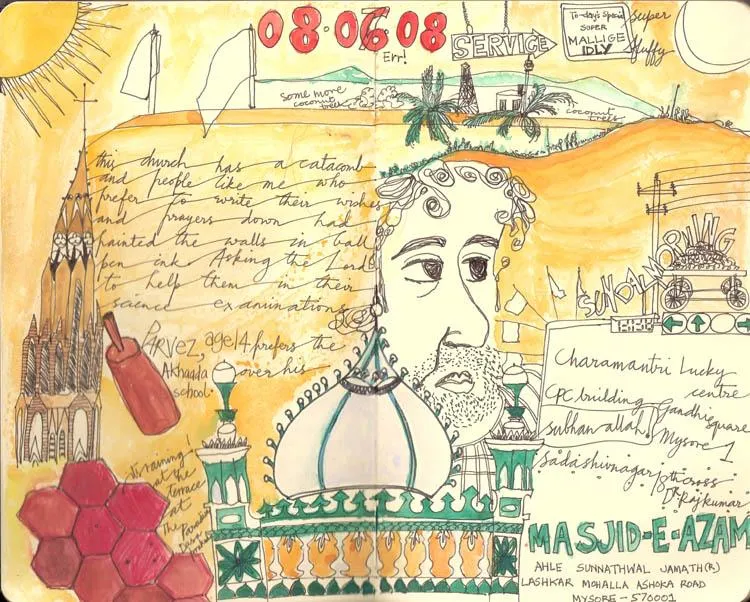 08.06.08
Err!
SERVICE
To-day's special
SUPER
MALLIGE
IDLY
super
fluffy
some more
coconut
trees
coconut
trees
this church has a catacomb
and people like me who
prefer to write their wishes
and prayers down had
painted the walls in ball
pen ink. Asking the Lord
to help them in their
science examinations
SUNDAL MORNING
PARVEZ, age 14 prefers the
Akhaada over his
school
It's raining!
at the
terrace
at
The
Charamantri Lucky
centre
CPC building, Gandhi square
subhan allah! Mysore 1
Sadashivnagar 18th cross
Dr. Rajkumar
MASJID-E-AZAM
AHLE SUNNATHWAL JAMATH(R)
LASHKAR MOHALLA ASHOKA ROAD
MYSORE - 570001